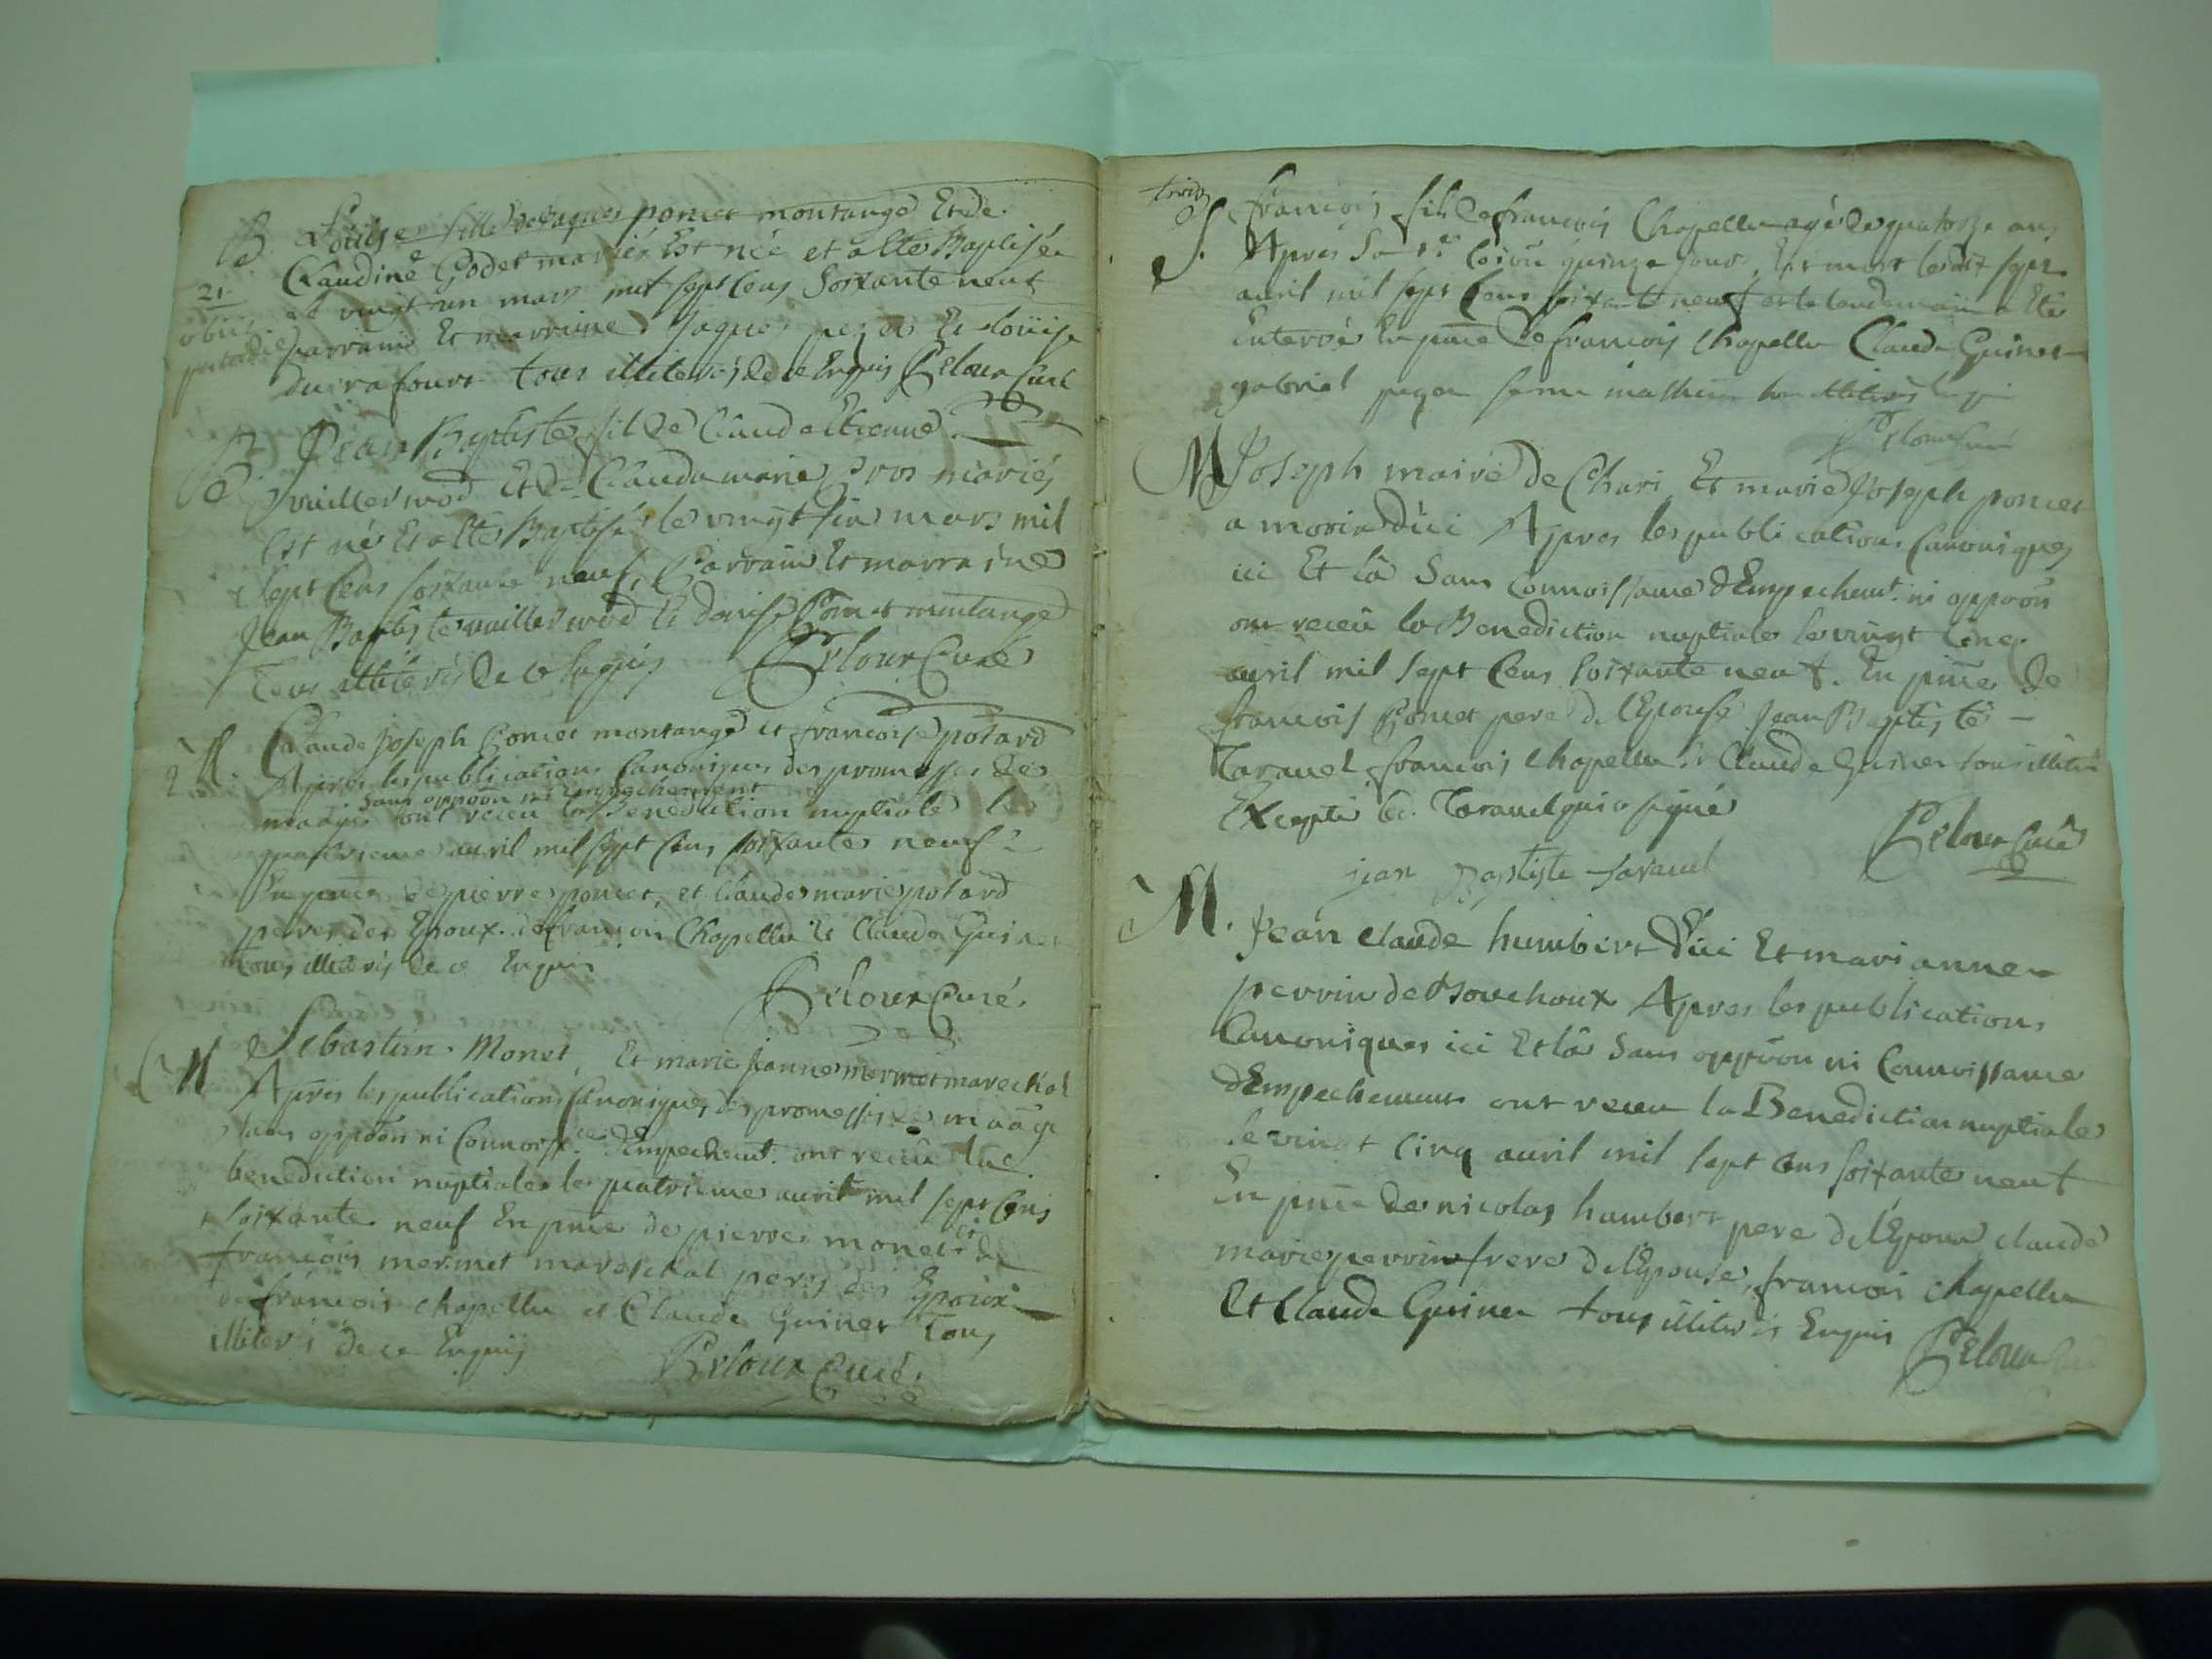 B Louise fille de Jaques poncet montange Et de
Claudine Godet mariés Est née et a Ete Baptisée
21. le vingt un mars mil sept Cens Soixante neuf
parrain Et marraine Jaques Et Louise
durafour tous illiterés de ce Enquis Relour Curé
B Jean Baptiste fil de Claude Etienne
vuillermod Et de Claudamarie gros mariés
Est né Et a Ete Baptisé le vingt six mars mil
Sept Cens Soixante neuf, Parrain Et marraine
Jean Baptiste vuillermod Et denise Poncet montange
Tous illiterés de ce Enquis Relour Curé
M. Claude Joseph Poncet montange et francoise potard
2 Apres les publications Canoniques des promesses de
sans oppoōn ni Empechement
maāge ont receu la Benediction nuptiale le
quatrieme avril mil sept Cens soixante neuf
En pnce de pierre poncet, et Claude marie potard
peres des Epoux. de francois Chapellu Et Claude Guinet
tous illiterés de ce Enquis
Relour Curé.
M Sebastien Monet, Et marie jeanne mermet mareschal
Apres les publications Canoniques des promesses de maāge
sans oppoōn ni Connoissce. d'Empechemt. ont receu la
benediction nuptiale le quatrieme avril mil sept Cens
soixante neuf En pnce de pierre monet et de
francois mermet mareschal peres des Epoux
de francois chapellu et Claude Guinet Tous
illiterés de ce Enquis
Relour Curé.
S. francois fils de francois Chapellu agé de quatorze ans
Apres Sa 1re. Coīon quinze jours, Est mort le dix sept
avril mil sept Cens soixante neuf et le lendemain a Eté
Enterré En pnce de francois Chapellu Claude Guinet
gabriel
Relour Curé
M Joseph maire de Chari Et marie Joseph poncet
d'ici Apres les publications Canoniques
ici Et là Sans Connoissance d'Empechemt. ni oppoōn
ont receu la Benediction nuptiale le vingt Cinq
avril mil sept Cens Soixante neuf. En pnce de
francois Poncet pere de l'Epouse Jean Baptiste
Taravel francois Chapellu Et Claude Guinet tous illiterés
Excepté led. Taravel qui a signé
jean Baptiste taravel Relour Curé
M. Jean claude humbert d'ici Et marianne
perrin de Bouchoux Apres les publications
Canoniques ici Et là Sans oppoōn ni Connoissance
d'Empechement ont receu la Benediction nuptiale
le vingt Cinq avril mil sept Cens soixante neuf
En pnce de nicolas humbert pere de l'Epoux claude
marie perrin frere de l'Epouse, francois chapellu
Et Claude Guinet tous illiterés Enquis Relour Curé